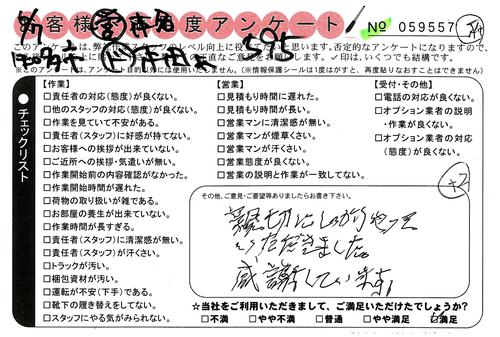 お客様満足度アンケート
№ 059557
このアンケートは、弊社作業スタッフのレベル向上に役立てたいと思います。否定的なアンケートになりますので、
ご意見をお願いします。✓印は、いくつでも結構です。
(※このアンケートは、アンケート目的以外には使用いたしません。)(※情報保護シールは1度はがすと、再度貼りなおすことはできません)
505
チェックリスト
【作業】
□責任者の対応(態度)が良くない。
□他のスタッフの対応(態度)が良くない。
□作業を見ていて不安がある。
□責任者(スタッフ)に好感が持てない。
□お客様への挨拶が出来ていない。
□ご近所への挨拶・気遣いが無い。
□作業開始前の内容確認がなかった。
□作業開始時間が遅れた。
□荷物の取り扱いが雑である。
□お部屋の養生が出来ていない。
□作業時間が長すぎる。
□責任者(スタッフ)に清潔感が無い。
□責任者(スタッフ)が汗くさい。
□トラックが汚い。
□梱包資材が汚い。
□運転が不安(下手)である。
□靴下の履き替えをしてない。
□スタッフにやる気がみられない。
【営業】
□見積もり時間に遅れた。
□見積もり時間が長い。
□営業マンに清潔感が無い。
□営業マンが煙草くさい。
□営業マンが汗くさい。
□営業態度が良くない。
□営業の説明と作業が一致してない。
【受付・その他】
□電話の対応が良くない。
□オプション業者の説明
・作業が良くない。
□オプション業者の対応
(態度)が良くない。
+2
その他、ご意見・ご要望等ありましたらお書き下さい。
親切にしっかりやって
いただきました。
感謝しています。
☆当社をご利用いただきまして、ご満足いただけたでしょうか?
□不満 □やや不満 □普通 □やや満足 □満足